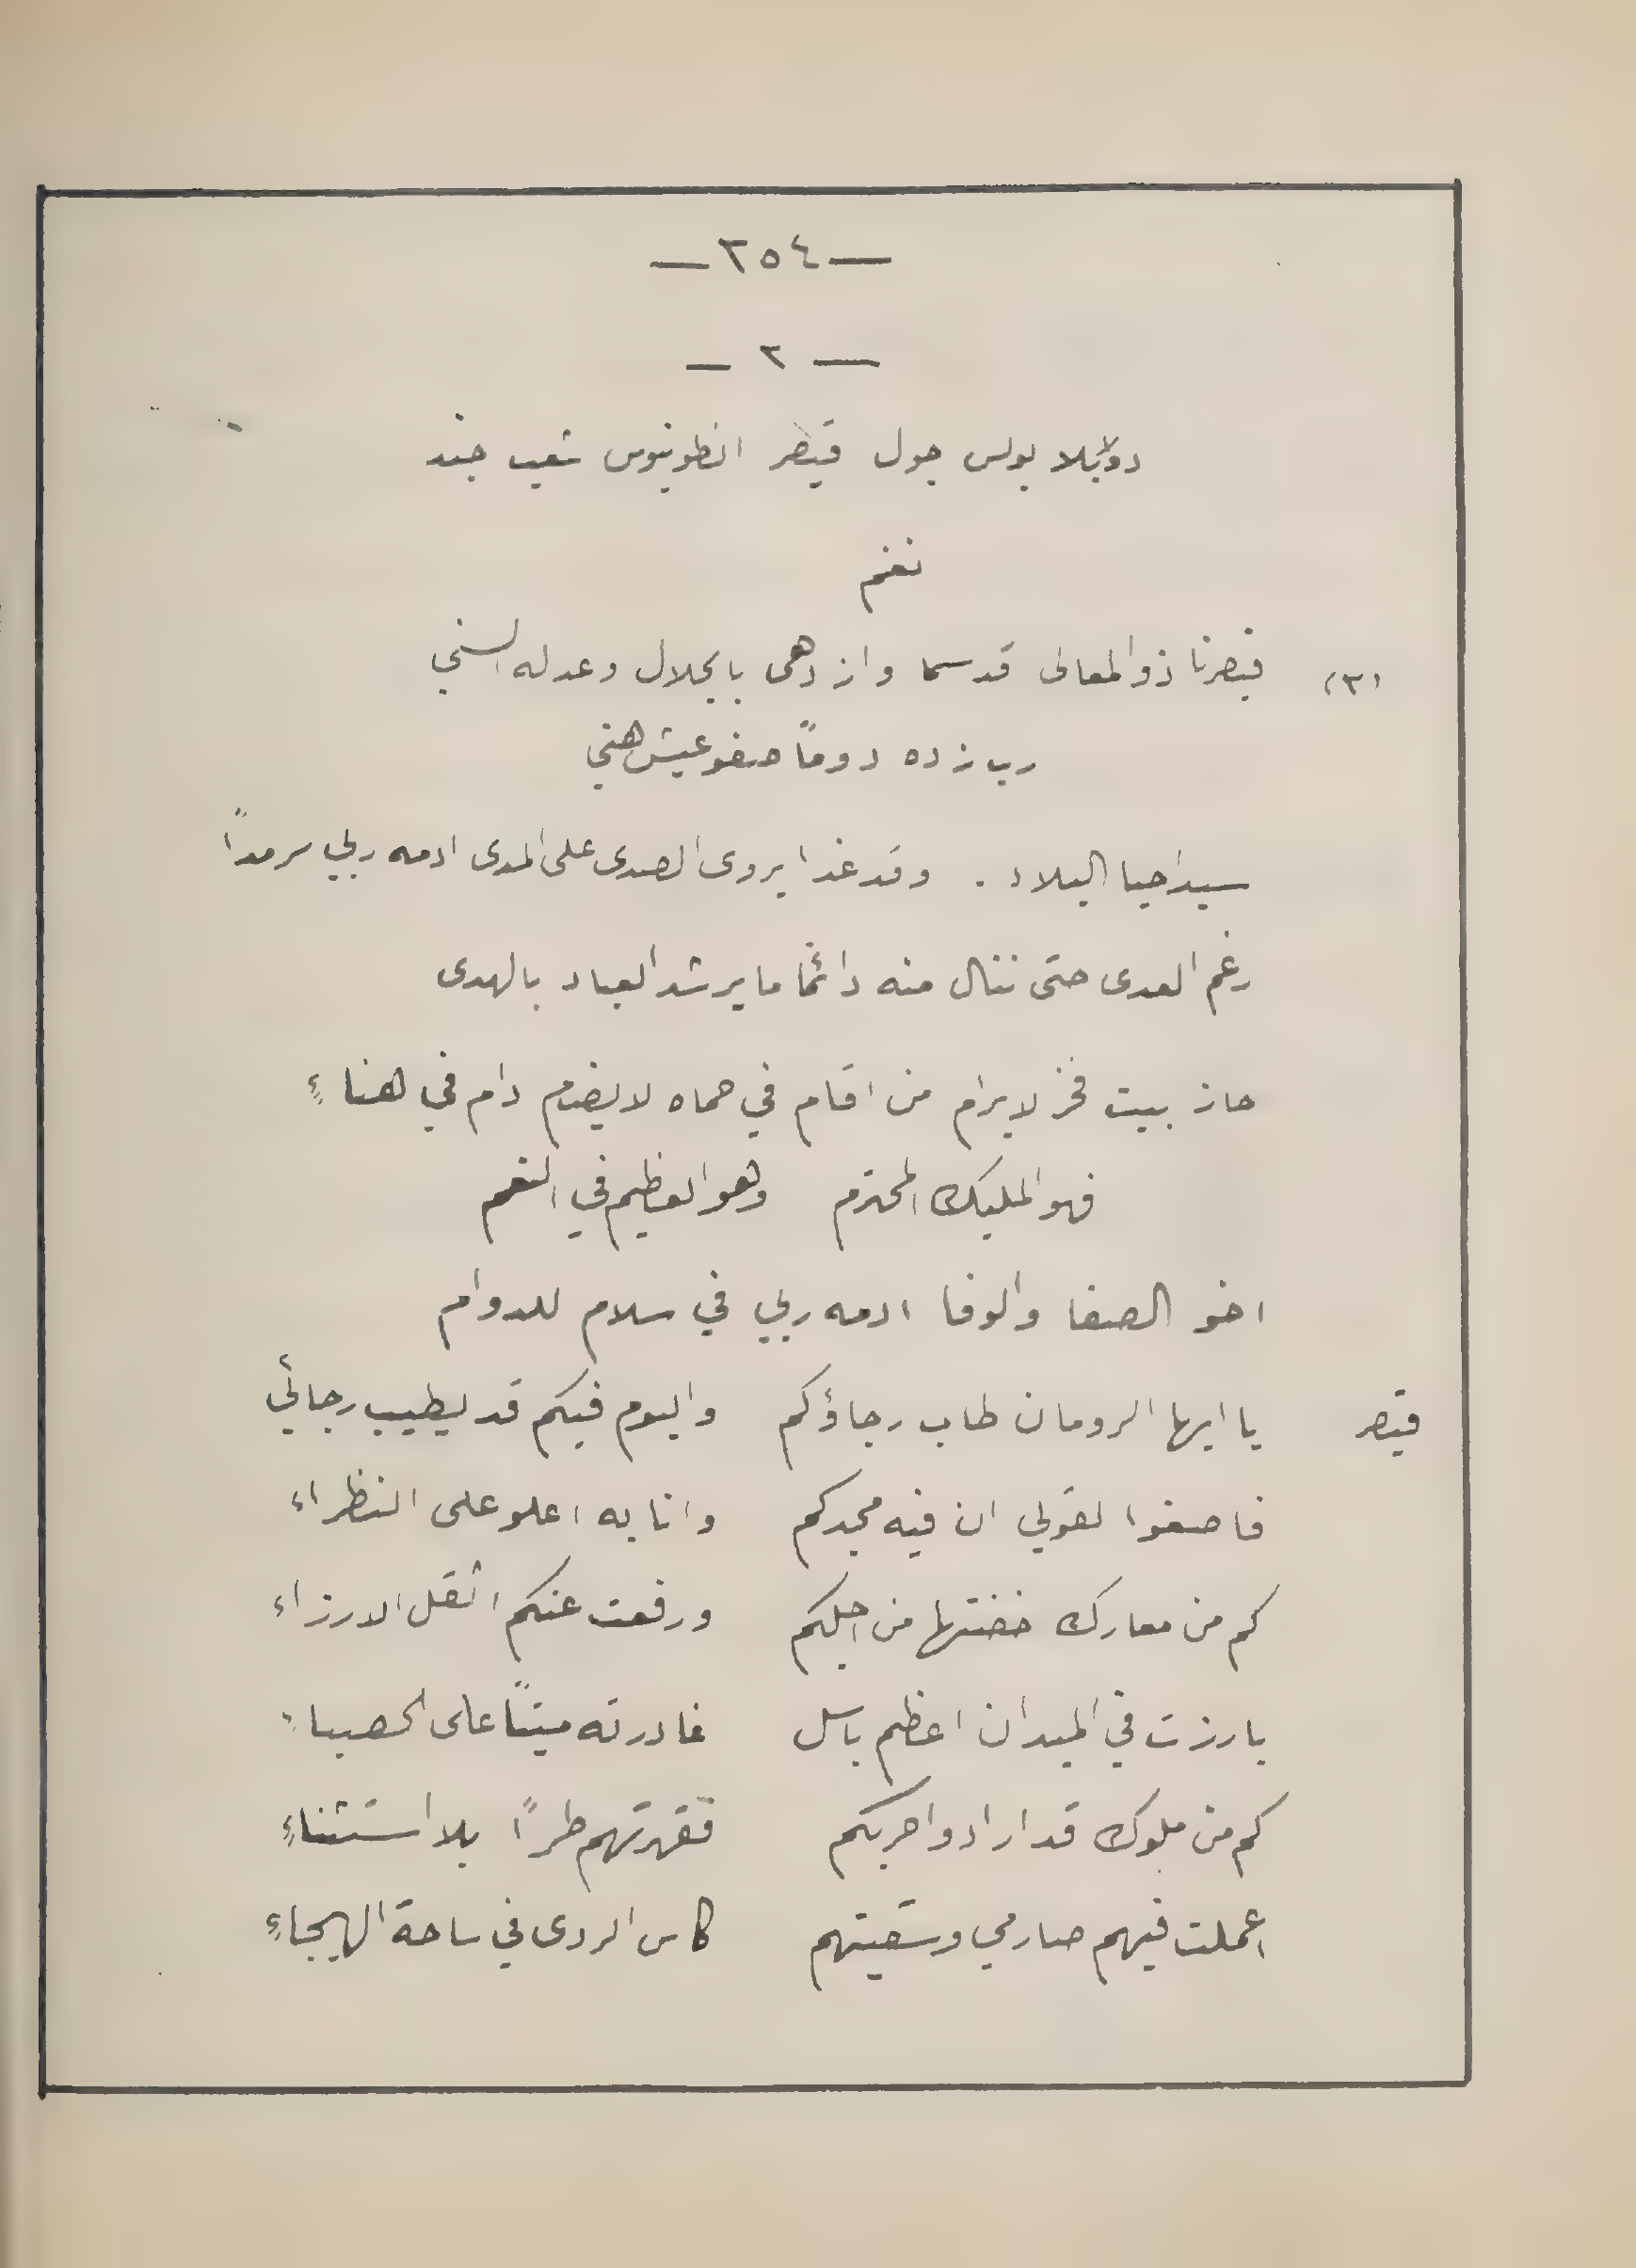 — ٢٥٤ —
— ٢ —
دولابلا بولس جول قيصر انطونيوس شعب جند
نغم
(٢) قيصرنا ذو المعالى قد سما وازدهى بالجلال وعدله السني
رب زده دوماً صفو عيش هني
سيد احيا البلاد . وقد غدا يروى الصدى على المدى ادمه ربي سرمداً
رغم العدى حتى ننال منه دائمًا ما يرشد العباد بالهدى
حاز بيت فخر لا يرام من اقام في حماه لا يضام دام في هناءٍ
فهو المليك المحترم وهو العظيم في النعم
اخو الصفا والوفا ادمه ربي في سلام للدوام
قيصر يا ايها الرومان طاب رجاؤكم واليوم فيكم قد يطيب رجائي
فاصغوا لقولي ان فيه مجدكم وانا به اعلو على النظراء
كم من معارك خضتها من اجلكم ورفعت عنكم اثقل الارزاء
بارزت في الميدان اعظم باسل غادرته ميتاً على الحصباء
كم من ملوك قد ارادوا حربكم فقهرتهم طراً بلا استثناءٍ
اعملت فيهم صارمي وسقيتهم كاس الردى في ساحة الهيجاءِ